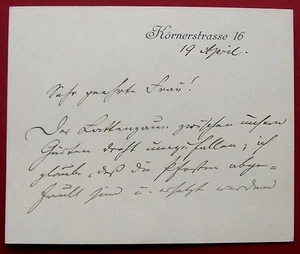 Körnerstrasse 16
19 April.
Sehr geehrte Frau!
Der Lattenzaun zwischen unsern
Gärten droht umzufallen; ich
glaube, daß die Pfosten abge-
fault sind u. ersetzt werden